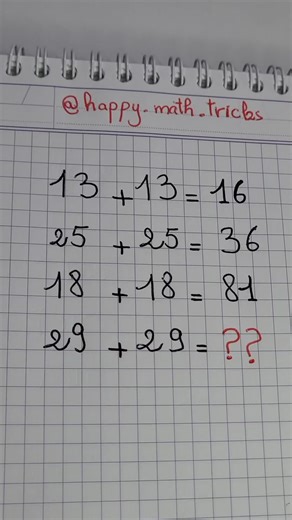 @happy-math-tricks
13 + 13 = 16
25 + 25 = 36
18 + 18 = 81
29 + 29 = ??